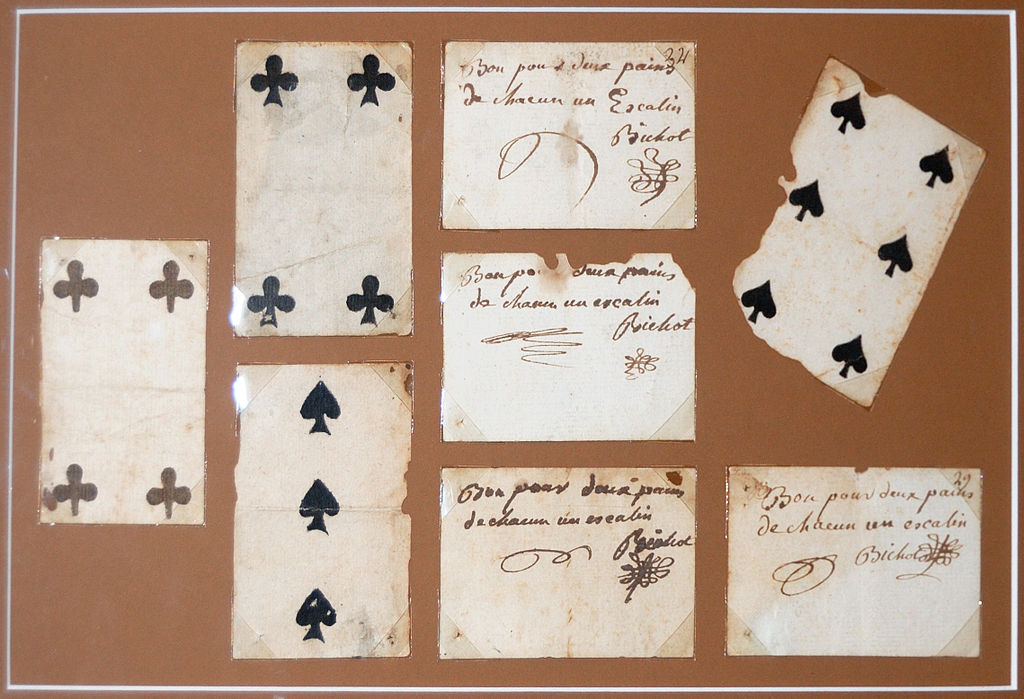 22
Bon pour deux pains
de chacun un Escalin
Bichot
Bon po deux pains
de chacun un escalin
Bichot
Bon pour deux pains
de chacun un escalin
Bichot
29
Bon pour deux pains
de chacun un escalin
Bichot